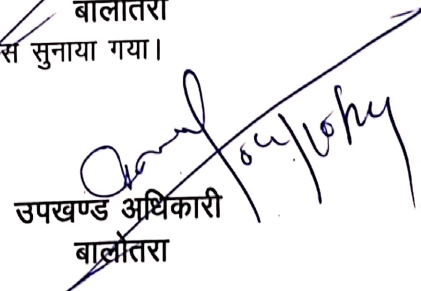 बालोतरा
स सुनाया गया।
उपखण्ड अधिकारी
बालोतरा